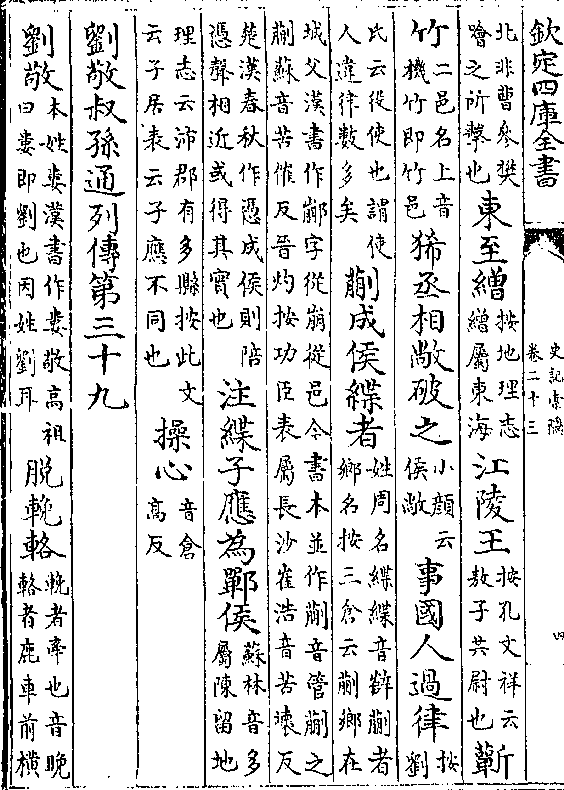 欽定四庫全書
史記索隱
卷二十三
四
北非曹參樊噲之所擊也 東至繒 按地理志繒屬東海 江陵王 按孔文祥云敖子共尉也 蘄
竹 二邑名上音機竹即竹邑 狶丞相敞破之 小顔云侯敞 事國人過律 按劉
氏云役使也謂使人違律數多矣 蒯成侯緤者 姓周名緤緤音薛蒯者鄉名按三倉云蒯鄉在
城父漢書作𨻱字從崩從邑今書本並作蒯音管蒯之蒯蘇音苦催反晉灼按功臣表屬長沙崔浩音苦壊反
楚漢春秋作憑成侯則陪憑聲相近或得其實也 注緤子應為鄲侯 蘇林音多屬陳留地
理志云沛郡有多縣按此文云子居表云子應不同也 操心 音倉高反
劉敬叔孫通列傳第三十九
劉敬 本姓婁漢書作婁敬高祖曰婁即劉也因姓劉耳 脱輓輅 輓者牽也音晚輅者鹿車前横